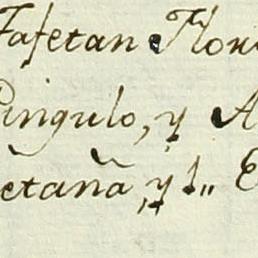 Tafetan Flor
Cingulo, y A
etaña, y 1,, E